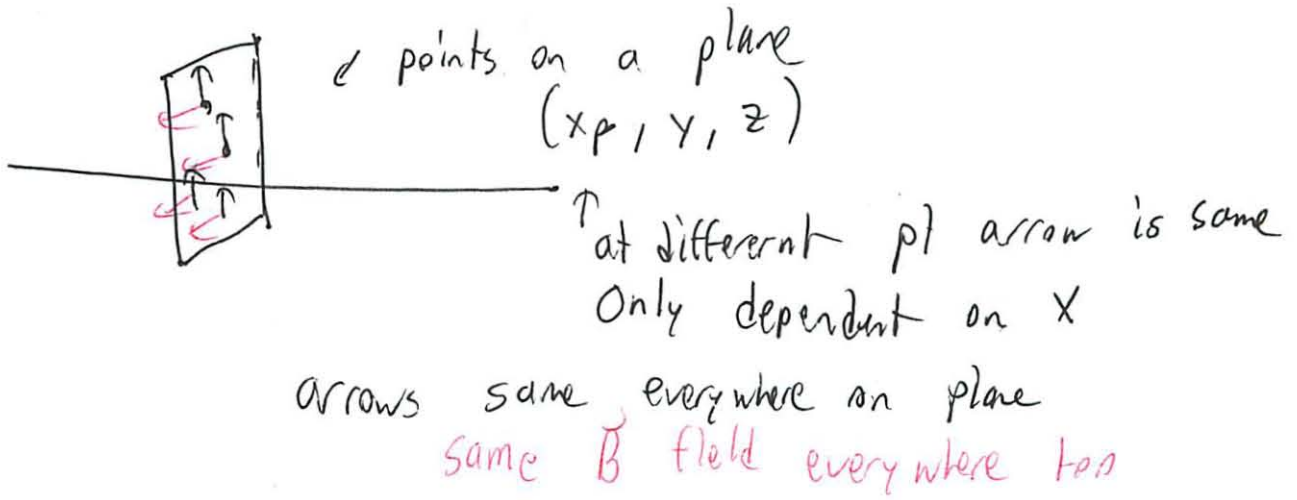 points on a plane
(xp, y, z)
↑ at differernt pt arrow is same
Only dependent on X
arrows same everywhere on plane
same B field everywhere too